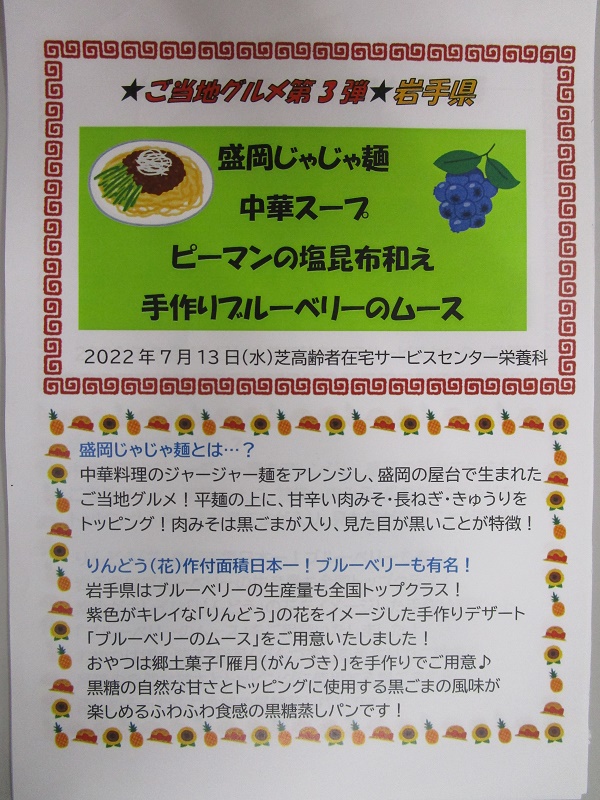 ★ご当地グルメ第3弾★岩手県
盛岡じゃじゃ麺
中華スープ
ピーマンの塩昆布和え
手作りブルーベリーのムース
2022年7月13日(水)芝高齢者在宅サービスセンター栄養科
盛岡じゃじゃ麺とは…?
中華料理のジャージャー麺をアレンジし、盛岡の屋台で生まれた
ご当地グルメ！平麺の上に、甘辛い肉みそ・長ねぎ・きゅうりを
トッピング！肉みそは黒ごまが入り、見た目が黒いことが特徴！
りんどう(花)作付面積日本一！ブルーベリーも有名！
岩手県はブルーベリーの生産量も全国トップクラス！
紫色がキレイな「りんどう」の花をイメージした手作りデザート
「ブルーベリーのムース」をご用意いたしました！
おやつは郷土菓子「雁月(がんづき)」を手作りでご用意♪
黒糖の自然な甘さとトッピングに使用する黒ごまの風味が
楽しめるふわふわ食感の黒糖蒸しパンです！